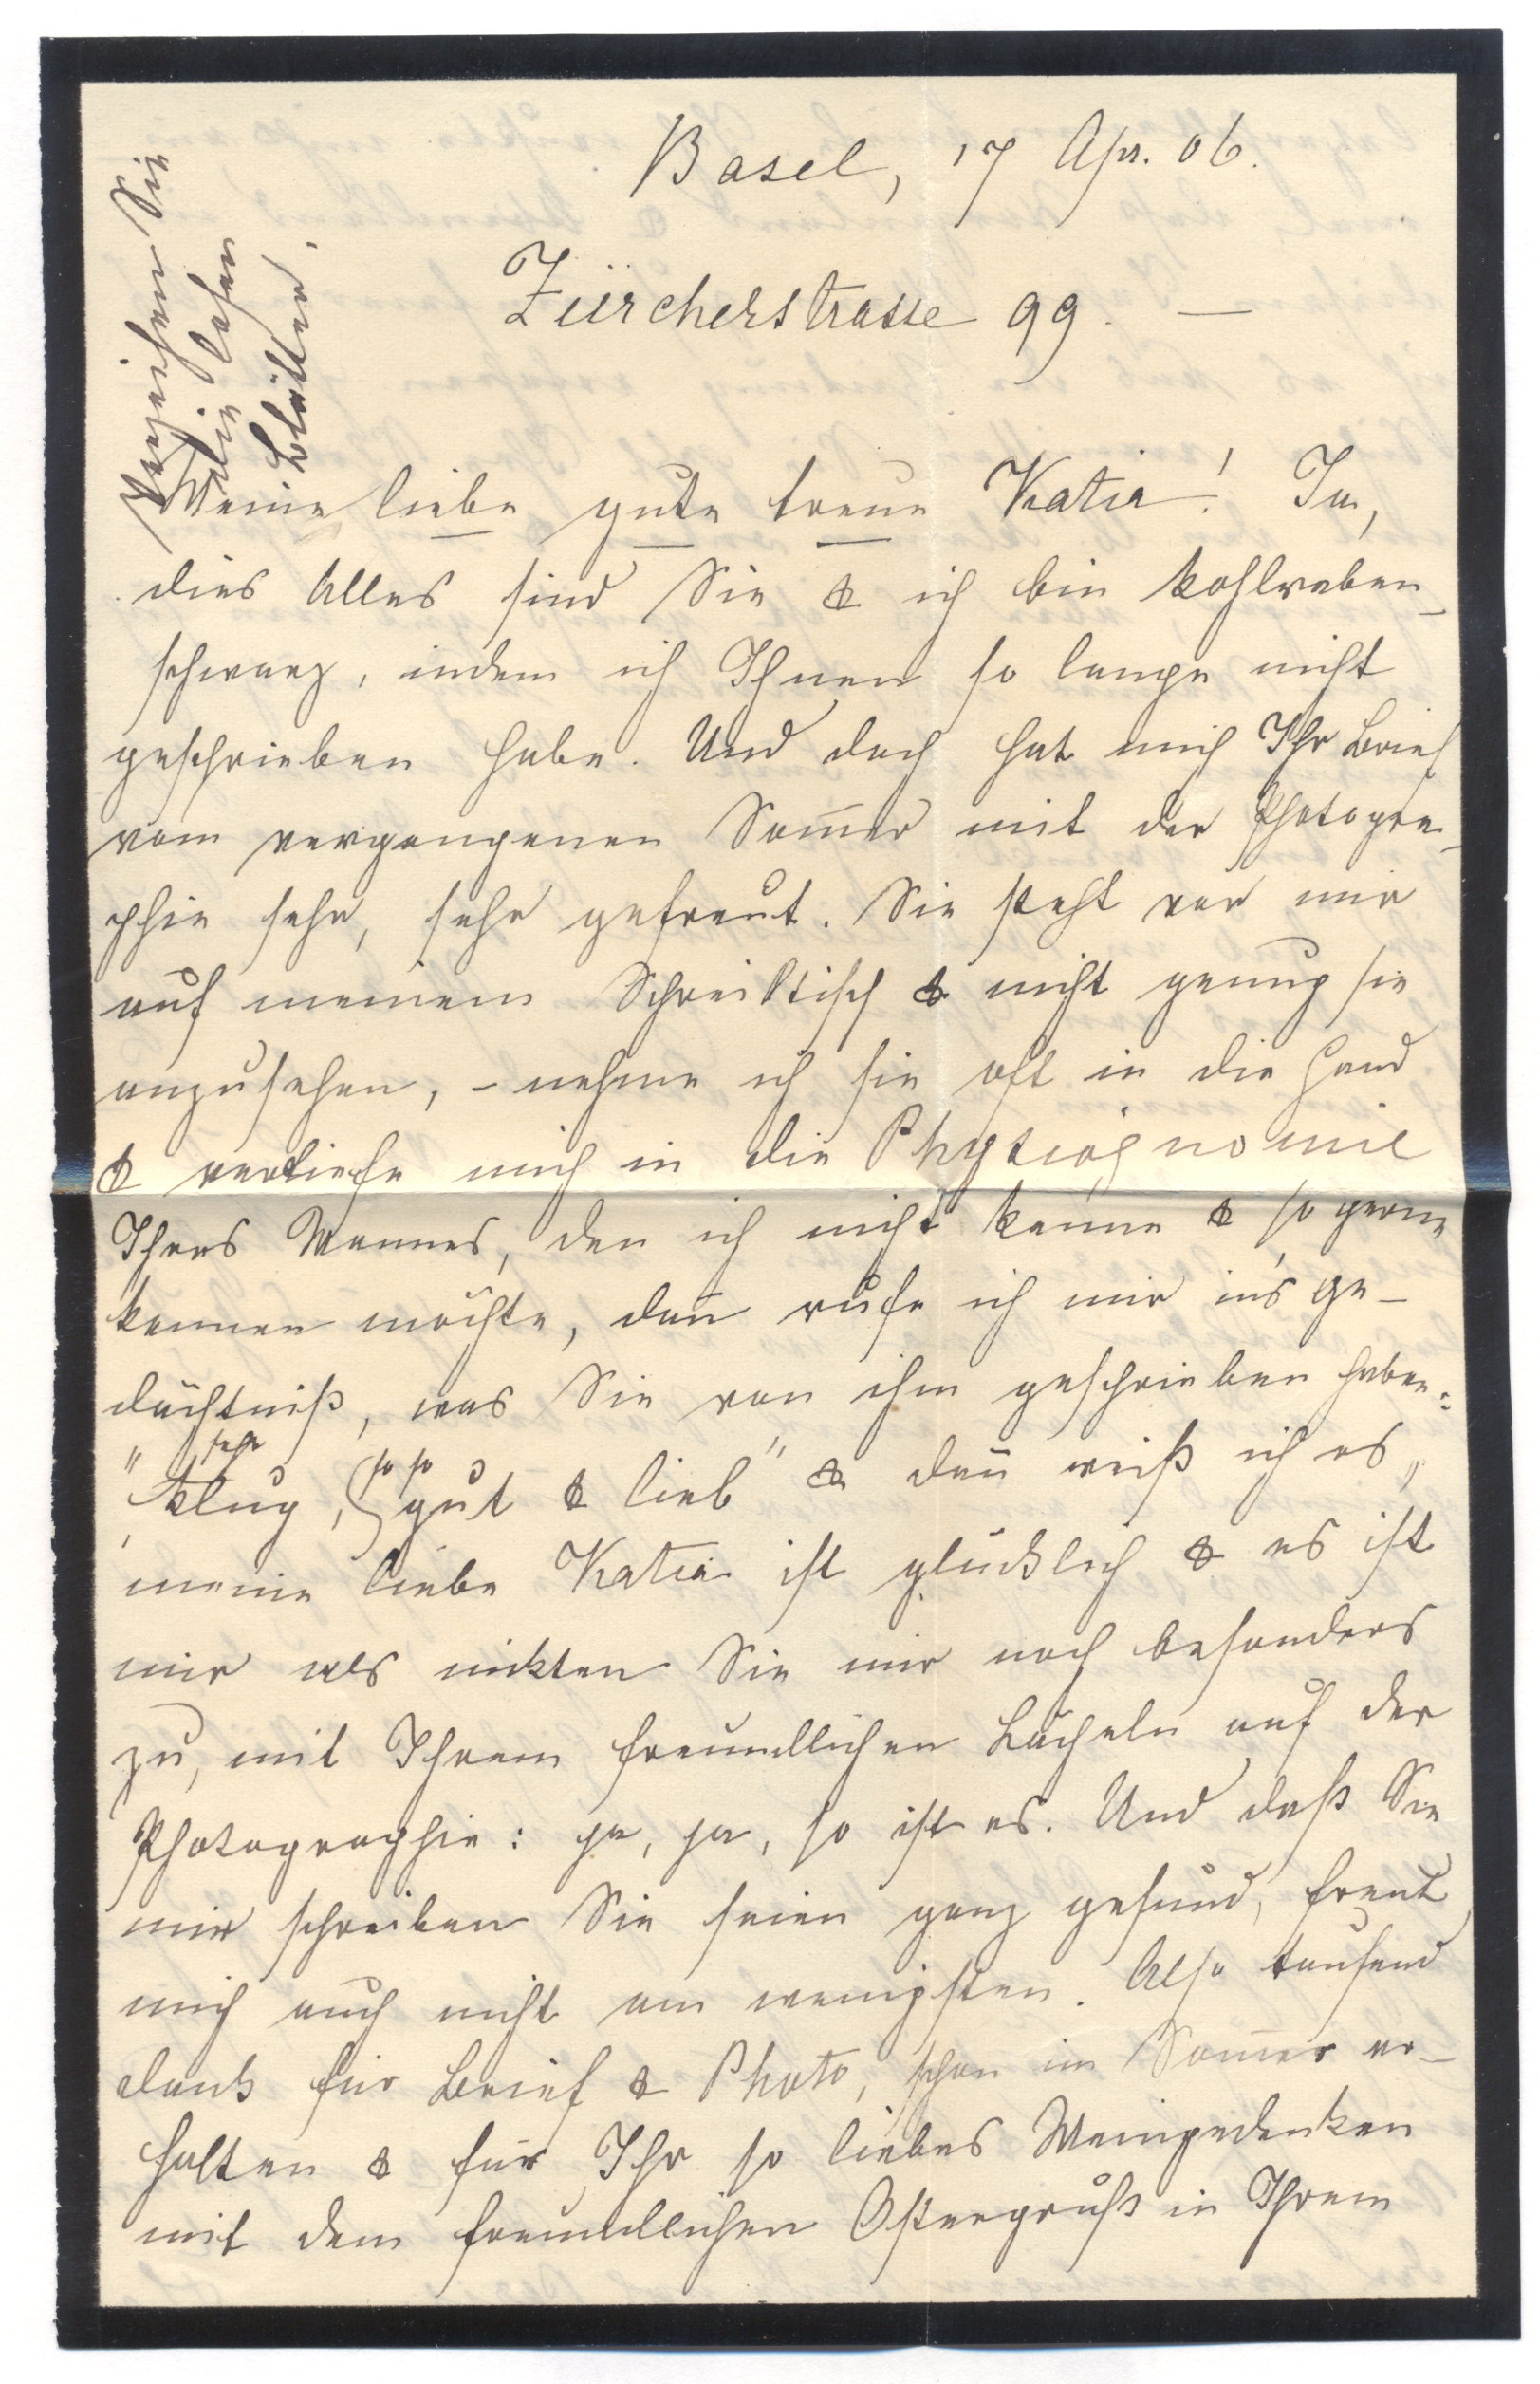 Basel, 17 Apr. 06.
Zürcherstrasse 99. —
Verzeihen Sie
die losen
Blätter.
Meine liebe gute treue Katia! Ja,
dies Alles sind Sie & ich bin kohlraben-
schwarz, indem ich Ihnen so lange nicht
geschrieben habe. Und doch hat mich Ihr Brief
vom vergangenen Som̅er mit der Photogra-
phie sehr, sehr gefreut. Sie steht vor mir
auf meinem Schreibtisch & nicht genug sie
anzusehen, – nehme ich sie oft in die Hand
& vertiefe mich in die Physiognomie
Ihres Mannes, den ich nicht kenne & so gerne
kennen möchte, dan̅ rufe ich mir in's Ge-
dächtniß, was Sie von ihm geschrieben haben:
"sehr klug, so so gut & lieb" & dan̅ weiß ich es,
meine liebe Katia ist glücklich & es ist
mir als nickten Sie mir noch besonders
zu, mit Ihrem freundlichen Lächeln auf der
Photographie: ja, ja, so ist es. Und daß Sie
mir schreiben Sie seien ganz gesund, freut
mich auch nicht am wenigsten. Also tausend
Dank für Brief & Photo, schon im Som̅er er-
halten & für Ihr so liebes Meingedenken
mit dem freundlichen Ostergruß in Ihrem